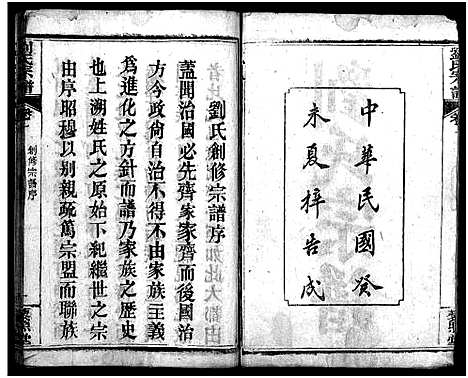 劉氏宗譜
卷一
中華民國癸
未夏梓告成
劉氏創修宗譜序
蓋聞治國必先齊家家齊而後國治
方今政尚自治不得不由家族主義
為進化之方針而譜乃家族之歷史
也上溯姓氏之原始下紀繼世之宗
由序昭穆以别親疏篤宗盟而聯族
劉氏宗譜
卷一
創修宗譜序
一